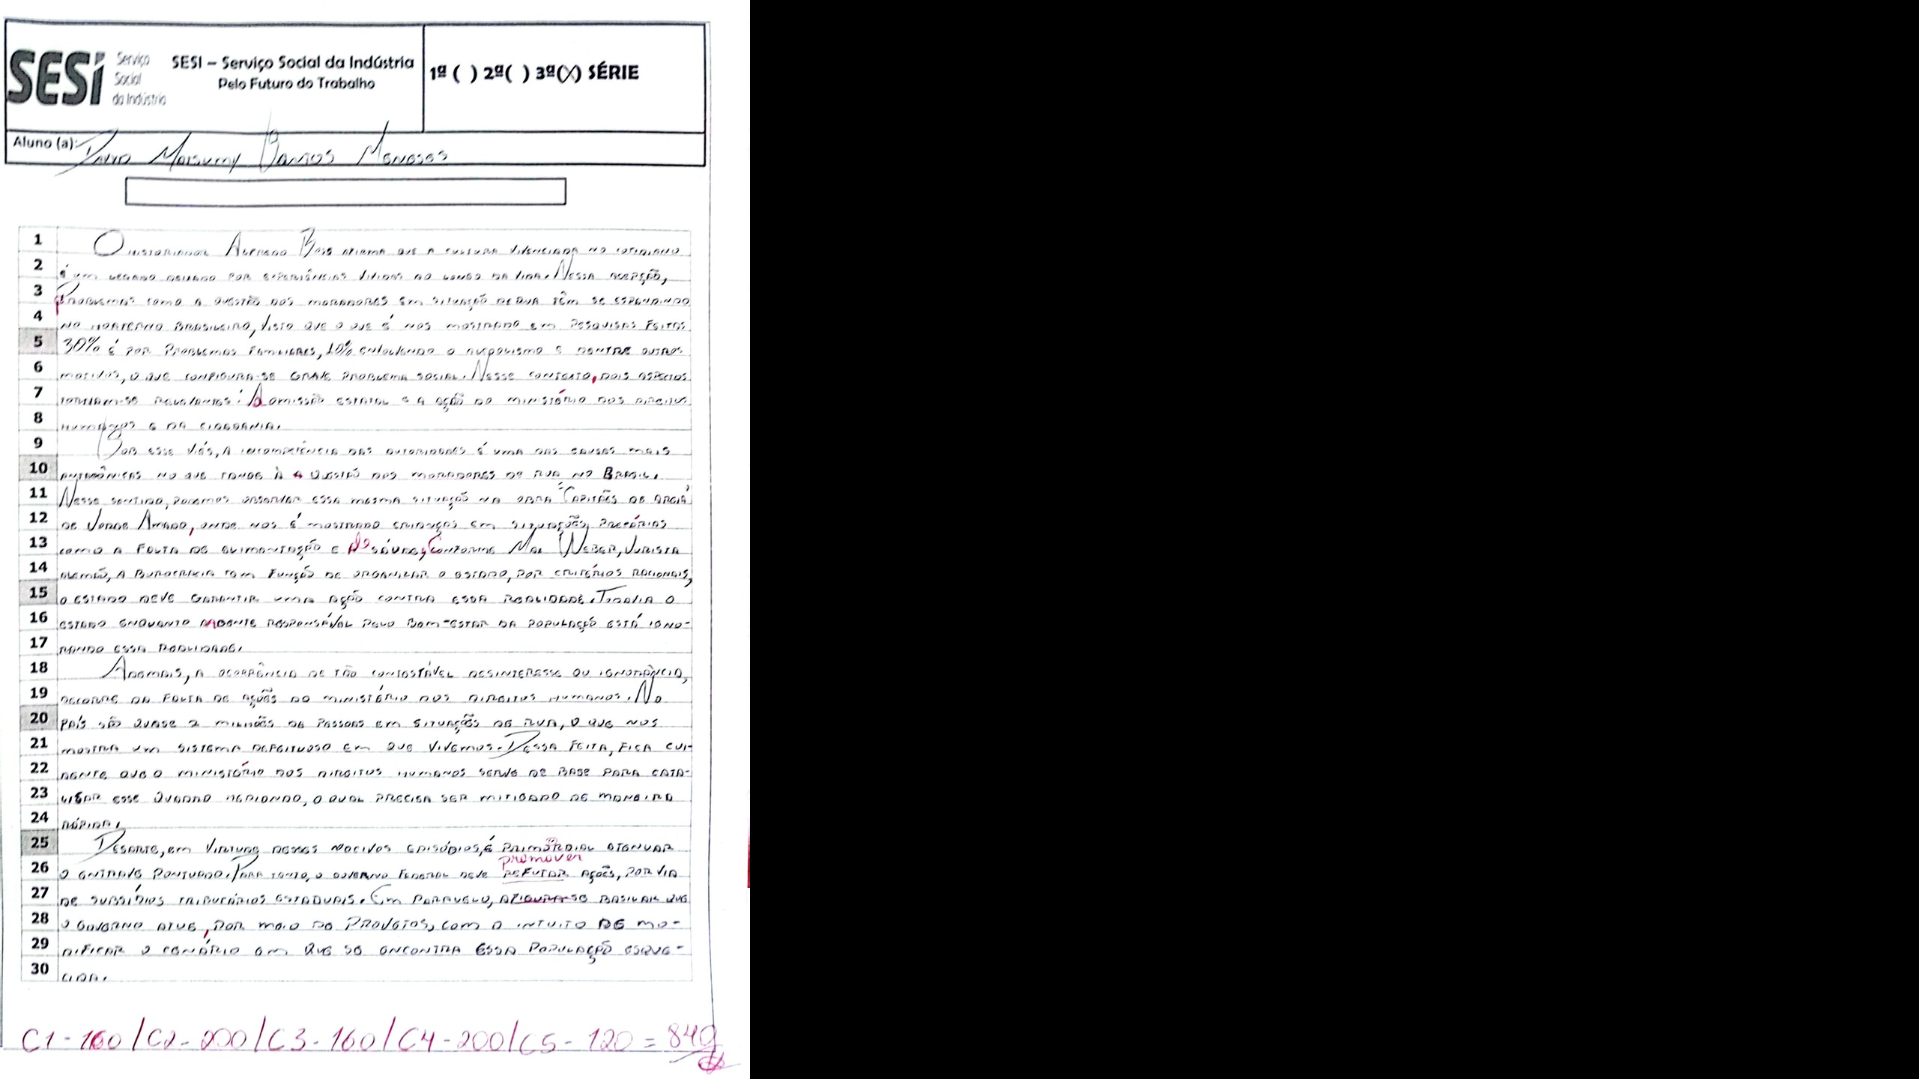 SESI Serviço
Social
da Indústria
SESI – Serviço Social da Indústria
Pelo Futuro do Trabalho
1ª ( ) 2ª( ) 3ª(X) SÉRIE
Aluno (a): Santos Meneses
1 O historiador Alfredo Bosi afirma que a cultura vivenciada no cotidiano
2 é um legado deixado por experiências vividas ao longo da vida. Nessa acepção,
3 Problemas como a questão dos moradores em situação de rua têm se expandindo
4 no hodierno brasileiro, visto que o que é nos mostrado em pesquisas feitas
5 30% é por problemas familiares, 10% envolvendo o alcoolismo e dentre outros
6 motivos, o que configura-se grave problema social. Nesse contexto, dois aspectos
7 tornam-se relevantes: A omissão estatal e a ação do ministério dos direitos
8 humanos e da cidadania.
9 Sob esse viés, a incompetência das autoridades é uma das causas mais
10 no que tange à a questão dos moradores de rua no Brasil.
11 Nesse sentido, podemos observar essa mesma situação na obra "Capitães de areia"
12 de Jorge Amado, onde nos é mostrado crianças em situações precárias
13 como a falta de alimentação e de saúde, Conforme Max Weber, jurista
14 alemão, a burocracia tem função de organizar o estado, por critérios racionais,
15 o estado deve garantir uma ação contra essa realidade. Todavia o
16 estado enquanto agente responsável pelo bem-estar da população está igno-
17 rando essa realidade.
18 Ademais, a ocorrência de tão contestável desinteresse ou ignorância,
19 decorre da falta de ações do ministério dos direitos humanos. No
20 país são quase 2 milhões de pessoas em situações de rua, o que nos
21 mostra um sistema defeituoso em que vivemos. Dessa feita, fica evi-
22 dente que o ministério dos direitos humanos serve de base para cata-
23 lisar esse quadro hediondo, o qual precisa ser mitigado de maneira
24 rápida.
25 Desarte, em virtude desses nocivos episódios, é primordial atenuar
promover
26 o entrave pontuado. Para tanto, o governo federal deve refutar ações, por via
27 de subsídios tributários estaduais. Em paralelo, afigura-se basilar que
28 o governo atue, por meio de projetos, com o intuito de mo-
29 dificar o cenário em que se encontra essa população esque-
30 cida.
C1 - 160 / C2 - 200 / C3 - 160 / C4 - 200 / C5 - 120 = 840